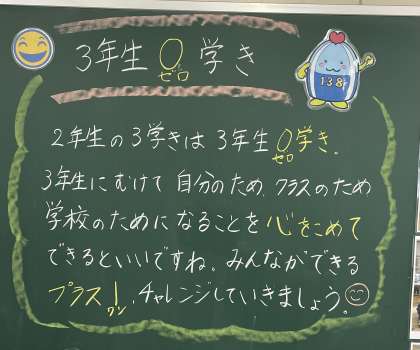 3年生 0 学き
ゼロ
138
2年生の3学きは 3年生 0学き、
ゼロ
3年生にむけて 自分のため、クラスのため
学校のためになることを 心をこめて
できるといいですね。みんなができる
プラス1、チャレンジしていきましょう。
ワン